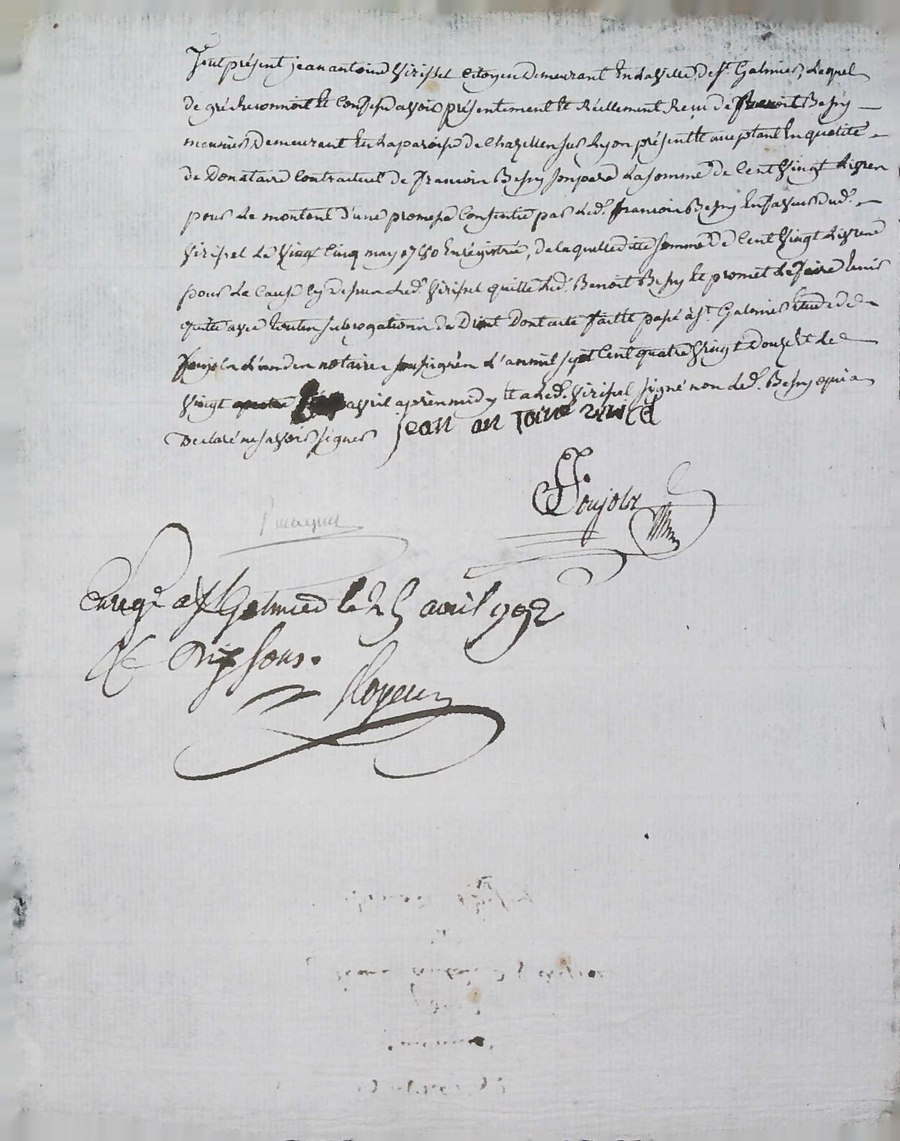 fut présent jean antoine Virissel Citoyen Demeurant En la Ville de St. Galmier, Lequel
de gré Reconnoit et Confesse avoir présentement et Réellement Reçu de Benoit Bessy
meunier Demeurant En la paroisse de Chazelles sur Lyon présent et acceptant En qualité
de Donataire Contractuel de francois Bessy son pere La somme de Cent Vingt Livres
pour Le montant d'une promesse Consentie par Led. francois Bessy En faveur dud.
Virissel Le Vingt Cinq may 1780 Enregistrée, de laquelle dite somme de Cent Vingt Livres
pour La Cause Cy dessus Led. Virissel quitte Led. Benoit Bessy et promet Le faire tenir
quitte avec toutes subrogations de Droit Dont acte fait et passé à St. Galmier Etude de
soujols L'un des notaires soussignés L'an mil sept Cent quatre Vingt Douze et Le
Vingt avril après midy et a Led. Virissel signé non Led. Bessy qui a
Declaré ne savoir signer jean an Toine
Soujols
Enregé a St Galmier le 25 avril 1792
R dix sous.
Royer